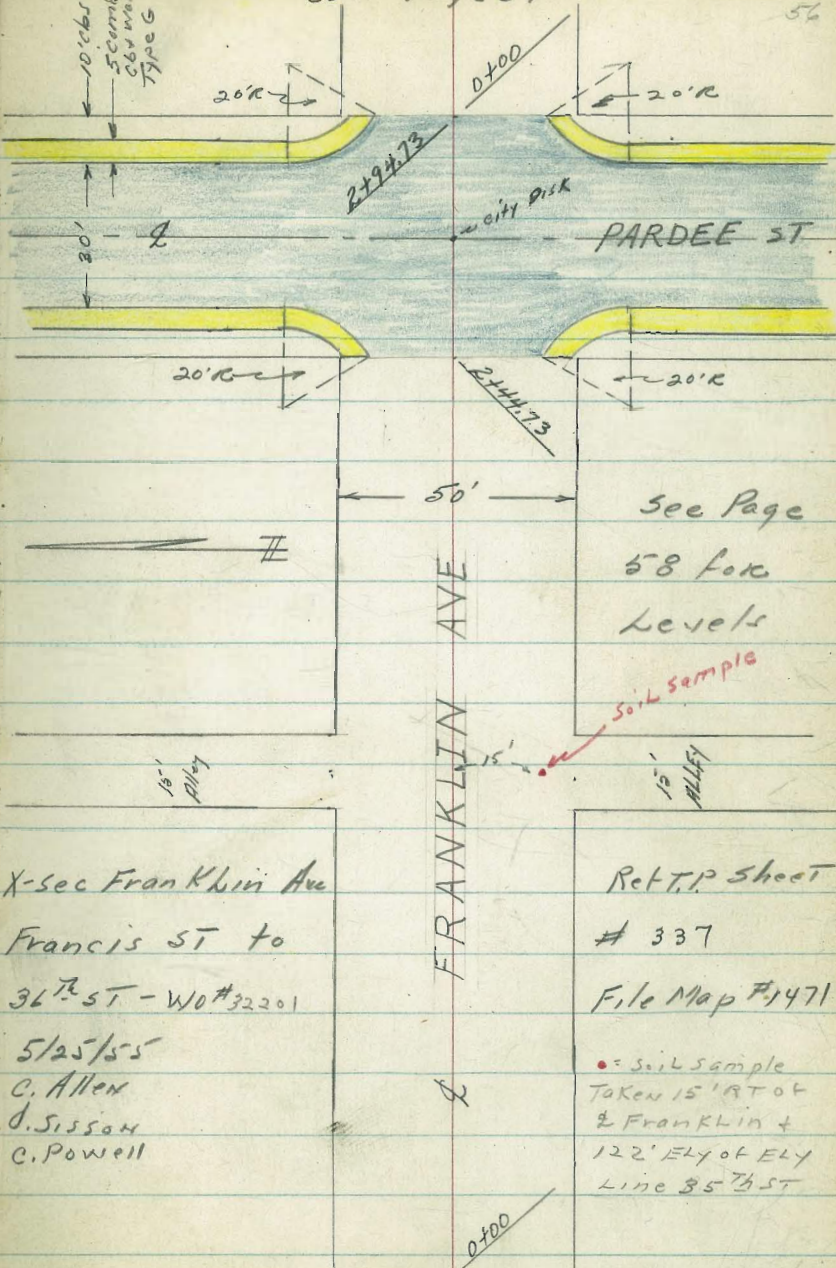 56
10' Cbs
5' Comb
Cb & Wa
Type G
0+00
20'R
20'R
2+94.73
City Disk
30'
℄
PARDEE ST
20'R
20'R
2+44.73
50'
See Page
58 for
Levels
Soil Sample
15'
15'
Alley
15'
ALLEY
FRANKLIN AVE
X-sec Franklin Ave
Francis ST to
36Th ST - WO#32201
5/25/55
C. Allen
J. Sisson
C. Powell
Ref T.P. Sheet
# 337
File Map #1471
• = Soil Sample
Taken 15' RT of
℄ Franklin &
122' ELY of ELY
Line 35Th ST
℄
0+00